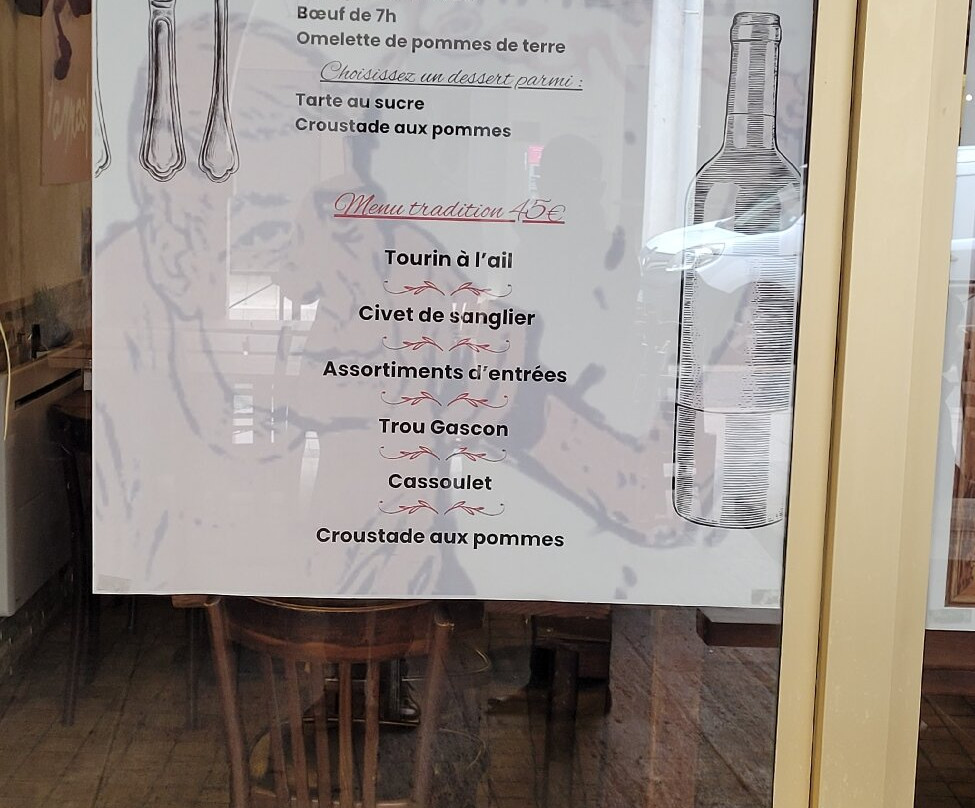 Bœuf de 7h
Omelette de pommes de terre
Choisissez un dessert parmi :
Tarte au sucre
Croustade aux pommes
Menu tradition 45€
Tourin à l'ail
Civet de sanglier
Assortiments d'entrées
Trou Gascon
Cassoulet
Croustade aux pommes